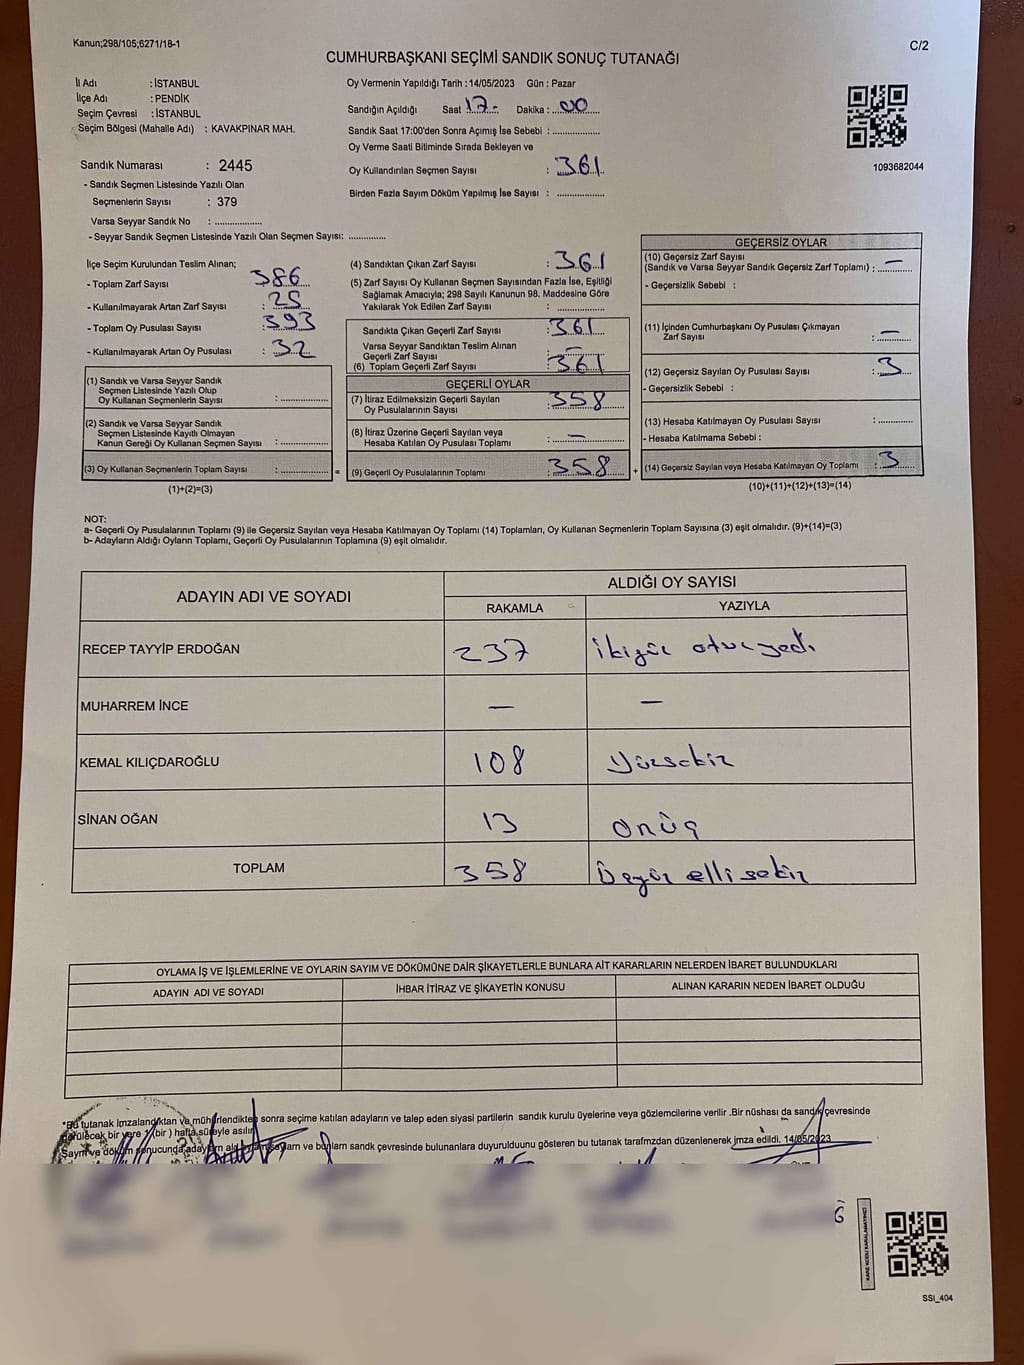 Kanun;298/105;6271/18-1
C/2
CUMHURBAŞKANI SEÇİMİ SANDIK SONUÇ TUTANAĞI
İl Adı : İSTANBUL
İlçe Adı : PENDİK
Seçim Çevresi : İSTANBUL
Seçim Bölgesi (Mahalle Adı) : KAVAKPINAR MAH.
Sandık Numarası : 2445
- Sandık Seçmen Listesinde Yazılı Olan
Seçmenlerin Sayısı : 379
Varsa Seyyar Sandık No : ..................
- Seyyar Sandık Seçmen Listesinde Yazılı Olan Seçmen Sayısı: ..............
Oy Vermenin Yapıldığı Tarih : 14/05/2023 Gün : Pazar
Sandığın Açıldığı Saat 17 - Dakika : 00
Sandık Saat 17:00'den Sonra Açımış İse Sebebi : ..................
Oy Verme Saati Bitiminde Sırada Bekleyen ve
Oy Kullandırılan Seçmen Sayısı : 361
Birden Fazla Sayım Döküm Yapılmış İse Sayısı : ..................
1093682044
İlçe Seçim Kurulundan Teslim Alınan;
- Toplam Zarf Sayısı : 386
- Kullanılmayarak Artan Zarf Sayısı : 25
- Toplam Oy Pusulası Sayısı : 393
- Kullanılmayarak Artan Oy Pusulası : 32
(1) Sandık ve Varsa Seyyar Sandık
Seçmen Listesinde Yazılı Olup
Oy Kullanan Seçmenlerin Sayısı : ..................
(2) Sandık ve Varsa Seyyar Sandık
Seçmen Listesinde Kayıtlı Olmayan
Kanun Gereği Oy Kullanan Seçmen Sayısı : ..................
(3) Oy Kullanan Seçmenlerin Toplam Sayısı : .................. =
(1)+(2)=(3)
(4) Sandıktan Çıkan Zarf Sayısı : 361
(5) Zarf Sayısı Oy Kullanan Seçmen Sayısından Fazla İse, Eşitliği
Sağlamak Amacıyla; 298 Sayılı Kanunun 98. Maddesine Göre
Yakılarak Yok Edilen Zarf Sayısı : ..................
Sandıkta Çıkan Geçerli Zarf Sayısı : 361
Varsa Seyyar Sandıktan Teslim Alınan
Geçerli Zarf Sayısı : —
(6) Toplam Geçerli Zarf Sayısı : 361
GEÇERLİ OYLAR
(7) İtiraz Edilmeksizin Geçerli Sayılan
Oy Pusulalarının Sayısı : 358
(8) İtiraz Üzerine Geçerli Sayılan veya
Hesaba Katılan Oy Pusulası Toplamı : —
(9) Geçerli Oy Pusulalarının Toplamı : 358 +
GEÇERSİZ OYLAR
(10) Geçersiz Zarf Sayısı
(Sandık ve Varsa Seyyar Sandık Geçersiz Zarf Toplamı) : —
- Geçersizlik Sebebi :
(11) İçinden Cumhurbaşkanı Oy Pusulası Çıkmayan
Zarf Sayısı : —
(12) Geçersiz Sayılan Oy Pusulası Sayısı : 3
- Geçersizlik Sebebi :
(13) Hesaba Katılmayan Oy Pusulası Sayısı : ..............
- Hesaba Katılmama Sebebi :
(14) Geçersiz Sayılan veya Hesaba Katılmayan Oy Toplamı : 3
(10)+(11)+(12)+(13)=(14)
NOT:
a- Geçerli Oy Pusulalarının Toplamı (9) ile Geçersiz Sayılan veya Hesaba Katılmayan Oy Toplamı (14) Toplamları, Oy Kullanan Seçmenlerin Toplam Sayısına (3) eşit olmalıdır. (9)+(14)=(3)
b- Adayların Aldığı Oyların Toplamı, Geçerli Oy Pusulalarının Toplamına (9) eşit olmalıdır.
ADAYIN ADI VE SOYADI ALDIĞI OY SAYISI
RAKAMLA YAZIYLA
RECEP TAYYİP ERDOĞAN 237 ikiyüz otuz yedi
MUHARREM İNCE — —
KEMAL KILIÇDAROĞLU 108 Yüzsekiz
SİNAN OĞAN 13 onüç
TOPLAM 358 Üçyüz elli sekiz
OYLAMA İŞ VE İŞLEMLERİNE VE OYLARIN SAYIM VE DÖKÜMÜNE DAİR ŞİKAYETLERLE BUNLARA AİT KARARLARIN NELERDEN İBARET BULUNDUKLARI
ADAYIN ADI VE SOYADI İHBAR İTİRAZ VE ŞİKAYETİN KONUSU ALINAN KARARIN NEDEN İBARET OLDUĞU
*Bu tutanak imzalandıktan ve mühürlendikten sonra seçime katılan adayların ve talep eden siyasi partilerin sandık kurulu üyelerine veya gözlemcilerine verilir .Bir nüshası da sandık çevresinde
görülecek bir yere 1 (bir ) hafta süreyle asılır.
Sayım ve döküm sonucunda adayların aldığı ve bunların sandık çevresinde bulunanlara duyurulduunu gösteren bu tutanak tarafımzdan düzenlenerek imza edildi. 14/05/2023
SSI_404